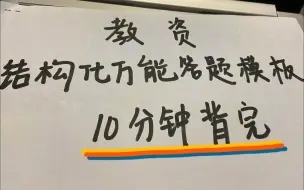 教资
结构化万能答题模板
10分钟背完